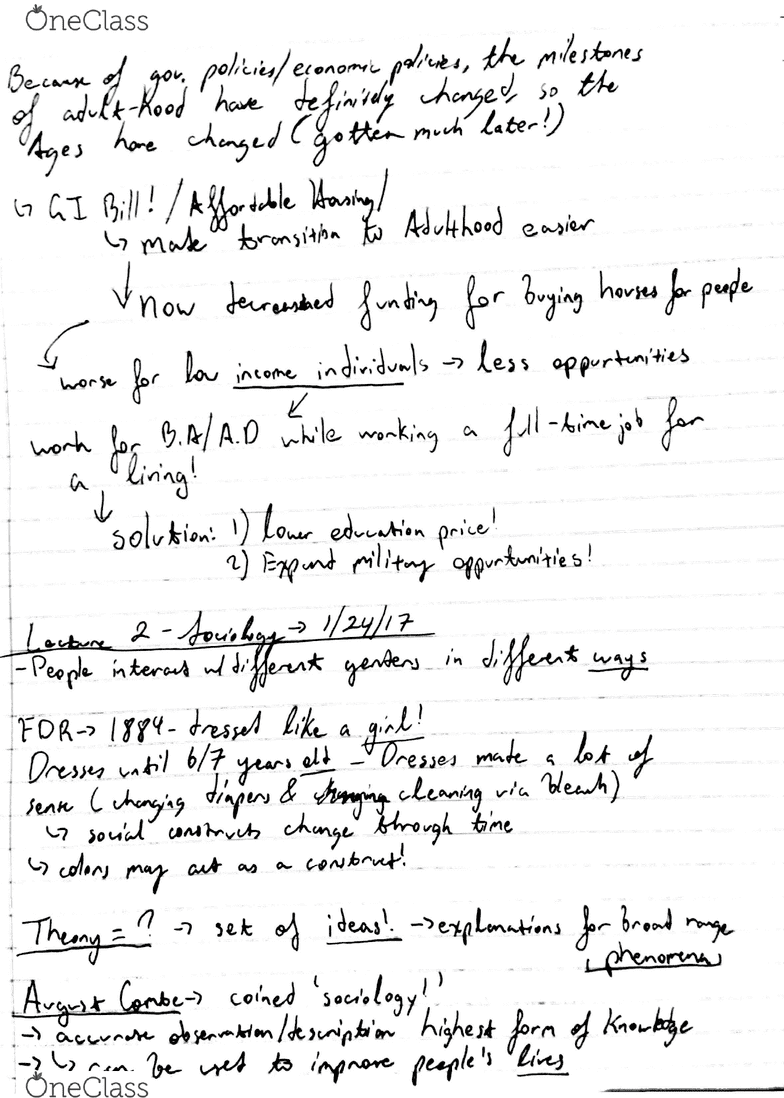 OneClass
Because of gov. policies/economic policies, the milestones
of adult-hood have definitely changed, so the
Ages have changed (gotten much later!)
↳ GI Bill! / Affordable Housing/
↳ make transition to Adulthood easier
↓ now decreased funding for buying houses for people
worse for low income individuals → less oppurtunities
work for B.A/A.D while working a full-time job for
a living!
↓ solution: 1) lower education price!
2) Expand military oppurtunities!
Lecture 2 - Sociology → 1/24/17
- People interact w/ different genders in different ways
FDR → 1884 - dressed like a girl!
Dresses until 6/7 years old - Dresses made a lot of
sense (changing diapers & cleaning via bleach)
↳ social constructs change through time
↳ colors may act as a construct!
Theory = ? → set of ideas! → explanations for broad range
phenomena
August Comte → coined 'sociology!'
→ accurate observation/description highest form of knowledge
→ ↳ can be used to improve people's lives
OneClass